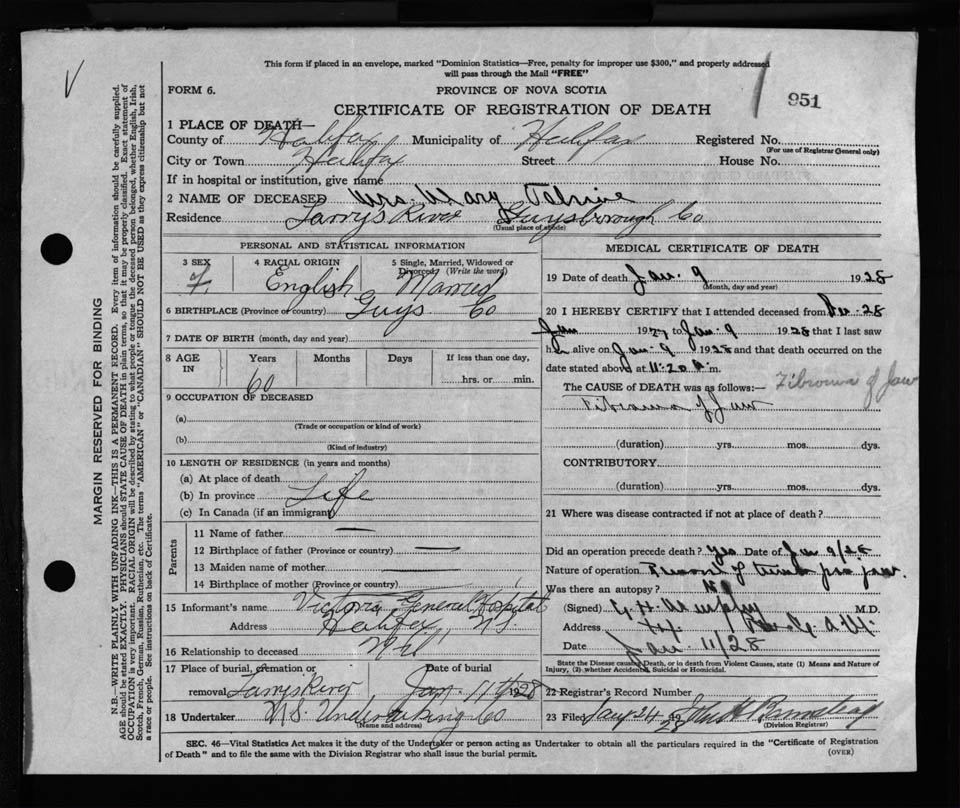 This form if placed in an envelope, marked "Dominion Statistics—Free, penalty for improper use $300," and properly addressed
will pass through the Mail "FREE"
FORM 6.
PROVINCE OF NOVA SCOTIA
951
CERTIFICATE OF REGISTRATION OF DEATH
1 PLACE OF DEATH—
County of Halifax Municipality of Halifax Registered No.
(For use of Registrar General only)
City or Town Halifax Street House No.
If in hospital or institution, give name
2 NAME OF DECEASED Mrs. Mary
Residence Larrys River Guysborough Co
(Usual place of abode)
PERSONAL AND STATISTICAL INFORMATION
3 SEX 4 RACIAL ORIGIN 5 Single, Married, Widowed or
Divorced (Write the word)
F. English Married
6 BIRTHPLACE (Province or country) Guys Co
7 DATE OF BIRTH (month, day and year)
8 AGE IN Years Months Days If less than one day,
60 hrs. or min.
9 OCCUPATION OF DECEASED
(a)
(Trade or occupation or kind of work)
(b)
(Kind of industry)
10 LENGTH OF RESIDENCE (in years and months)
(a) At place of death
(b) In province Life
(c) In Canada (if an immigrant)
Parents
11 Name of father —
12 Birthplace of father (Province or country) —
13 Maiden name of mother
14 Birthplace of mother (Province or country)
15 Informant's name Victoria General Hospital
Address Halifax, N.S.
16 Relationship to deceased Nil
17 Place of burial, cremation or Date of burial
removal Larrys River Jan. 11th 1928
18 Undertaker N.S. Undertaking Co
(Name and address)
MEDICAL CERTIFICATE OF DEATH
19 Date of death Jan. 9 1928
(Month, day and year)
20 I HEREBY CERTIFY that I attended deceased from Dec. 28
1927 to Jan. 9 1928 that I last saw
her alive on Jan. 9 1928 and that death occurred on the
date stated above at 11:20 m.
The CAUSE OF DEATH was as follows:— Fibroma of Jaw
Fibroma of Jaw
(duration) yrs. mos. dys.
CONTRIBUTORY.
(duration) yrs. mos. dys.
21 Where was disease contracted if not at place of death?
Did an operation precede death? Yes Date of Jan 9/28
Nature of operation Removal of tumor from jaw.
Was there an autopsy? No
(Signed) G. H. Murphy M.D.
Address Hfx
Date Jan. 11/28
State the Disease causing Death, or in death from Violent Causes, state (1) Means and Nature of
Injury, (2) whether Accidental, Suicidal or Homicidal.
22 Registrar's Record Number
23 Filed Jany 24 1928
(Division Registrar)
SEC. 46—Vital Statistics Act makes it the duty of the Undertaker or person acting as Undertaker to obtain all the particulars required in the "Certificate of Registration
of Death" and to file the same with the Division Registrar who shall issue the burial permit.
(OVER)
MARGIN RESERVED FOR BINDING
N.B.—WRITE PLAINLY WITH UNFADING INK—THIS IS A PERMANENT RECORD. Every item of information should be carefully supplied.
AGE should be stated EXACTLY. PHYSICIANS should STATE CAUSE OF DEATH in plain terms, so that it may be properly classified. Exact statement of
OCCUPATION is very important. RACIAL ORIGIN will be described by stating to what people or tongue the deceased person belonged, whether English, Irish,
Scotch, French, German, Russian, Ruthenian, etc. The terms "AMERICAN" or "CANADIAN" SHOULD NOT BE USED as they express citizenship but not
a race or people. See instructions on back of Certificate.